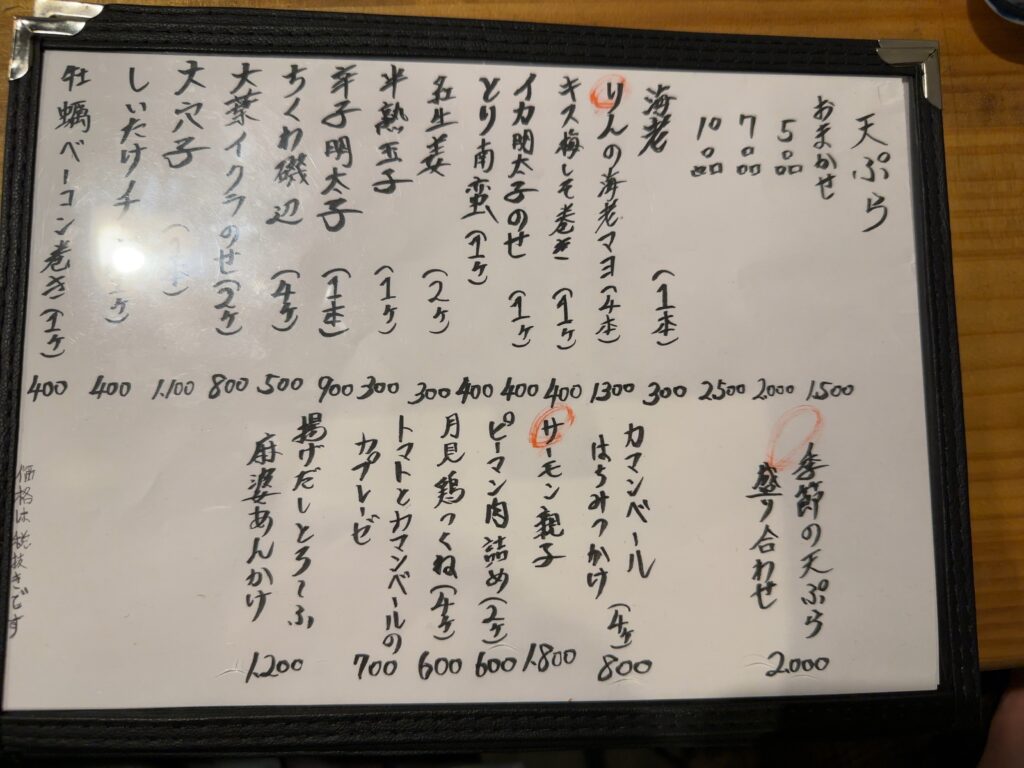 天ぷら
おまかせ
5品 1.500
7品 2.000
10品 2.500
海老 (1本) 300
りんの海老マヨ (4本) 1300
キス梅しそ巻き (1ヶ) 400
イカ明太子のせ (1ヶ) 400
とり南蛮 (1ヶ) 400
紅生姜 (2ヶ) 300
半熟玉子 (1ヶ) 300
辛子明太子 (1本) 900
ちくわ磯辺 (4ヶ) 500
大葉イクラのせ (2ヶ) 800
大穴子 (1本) 1.100
しいたけチ ヶ) 400
牡蠣ベーコン巻き (1ヶ) 400
季節の天ぷら
盛り合わせ 2.000
カマンベール
はちみつかけ (4ヶ) 800
サーモン親子 1.800
ピーマン肉詰め (2ヶ) 600
月見鶏つくね (4ヶ) 600
トマトとカマンベールの
カプレーゼ 700
揚げだしとろ〜ふ
麻婆あんかけ 1.200
価格は税抜きです